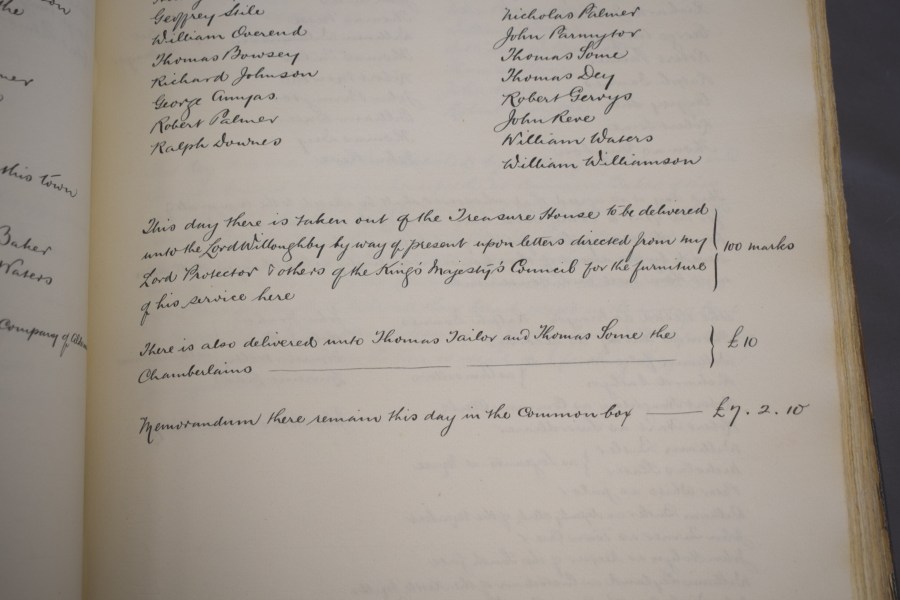 the
mer
this town
Baker
Waters
Company of
Geoffrey Stile
William Overend
Thomas Bowsey
Richard Johnson
George Annyas
Robert Palmer
Ralph Downes
Nicholas Palmer
John Parmytor
Thomas Some
Thomas Dey
Robert Gervys
John Reve
William Waters
William Williamson
This day there is taken out of the Treasure House to be delivered
unto the Lord Willoughby by way of present upon letters directed from my 100 marks
Lord Protector & others of the King's Majesty's Council for the furniture
of his service here
There is also delivered unto Thomas Tailor and Thomas Some the £10
Chamberlains
Memorandum there remain this day in the Common box £7.2.10